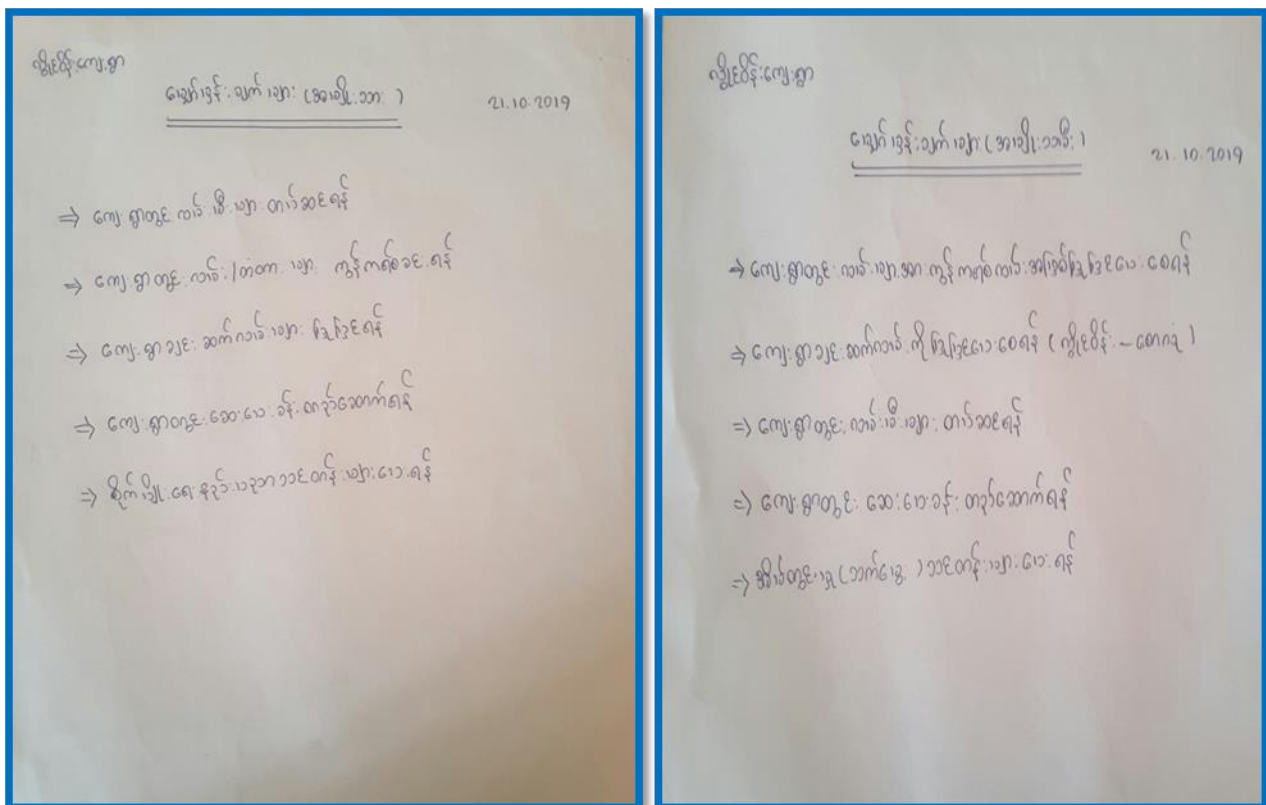 လှိုင်ဝိန်းကျေးရွာ
မျှော်မှန်းချက်များ (အမျိုးသား)
21.10.2019
⇒ ကျေးရွာတွင် လမ်းမီးများ တပ်ဆင်ရန်
⇒ ကျေးရွာတွင်း လမ်း/တံတားများ ကွန်ကရစ်ခင်းရန်
⇒ ကျေးရွာချင်းဆက်လမ်းများ ပြုပြင်ရန်
⇒ ကျေးရွာတွင်းဆေးပေးခန်း တည်ဆောက်ရန်
⇒ စိုက်ပျိုးရေးနည်းပညာသင်တန်းများပေးရန်
လှိုင်ဝိန်းကျေးရွာ
မျှော်မှန်းချက်များ (အမျိုးသမီး)
21.10.2019
⇒ ကျေးရွာတွင်း လမ်းများအား ကွန်ကရစ်လမ်းအဖြစ်ပြုပြင်ပေးစေရန်
⇒ ကျေးရွာချင်းဆက်လမ်းကိုပြုပြင်ပေးစေရန် (လှိုင်ဝိန်း –
⇒ ကျေးရွာတွင်း လမ်းမီးများ တပ်ဆင်ရန်
⇒ ကျေးရွာတွင်း ဆေးပေးခန်း တည်ဆောက်ရန်
⇒ အိမ်တွင်းမှု (သက်မွေး) သင်တန်းများပေးရန်